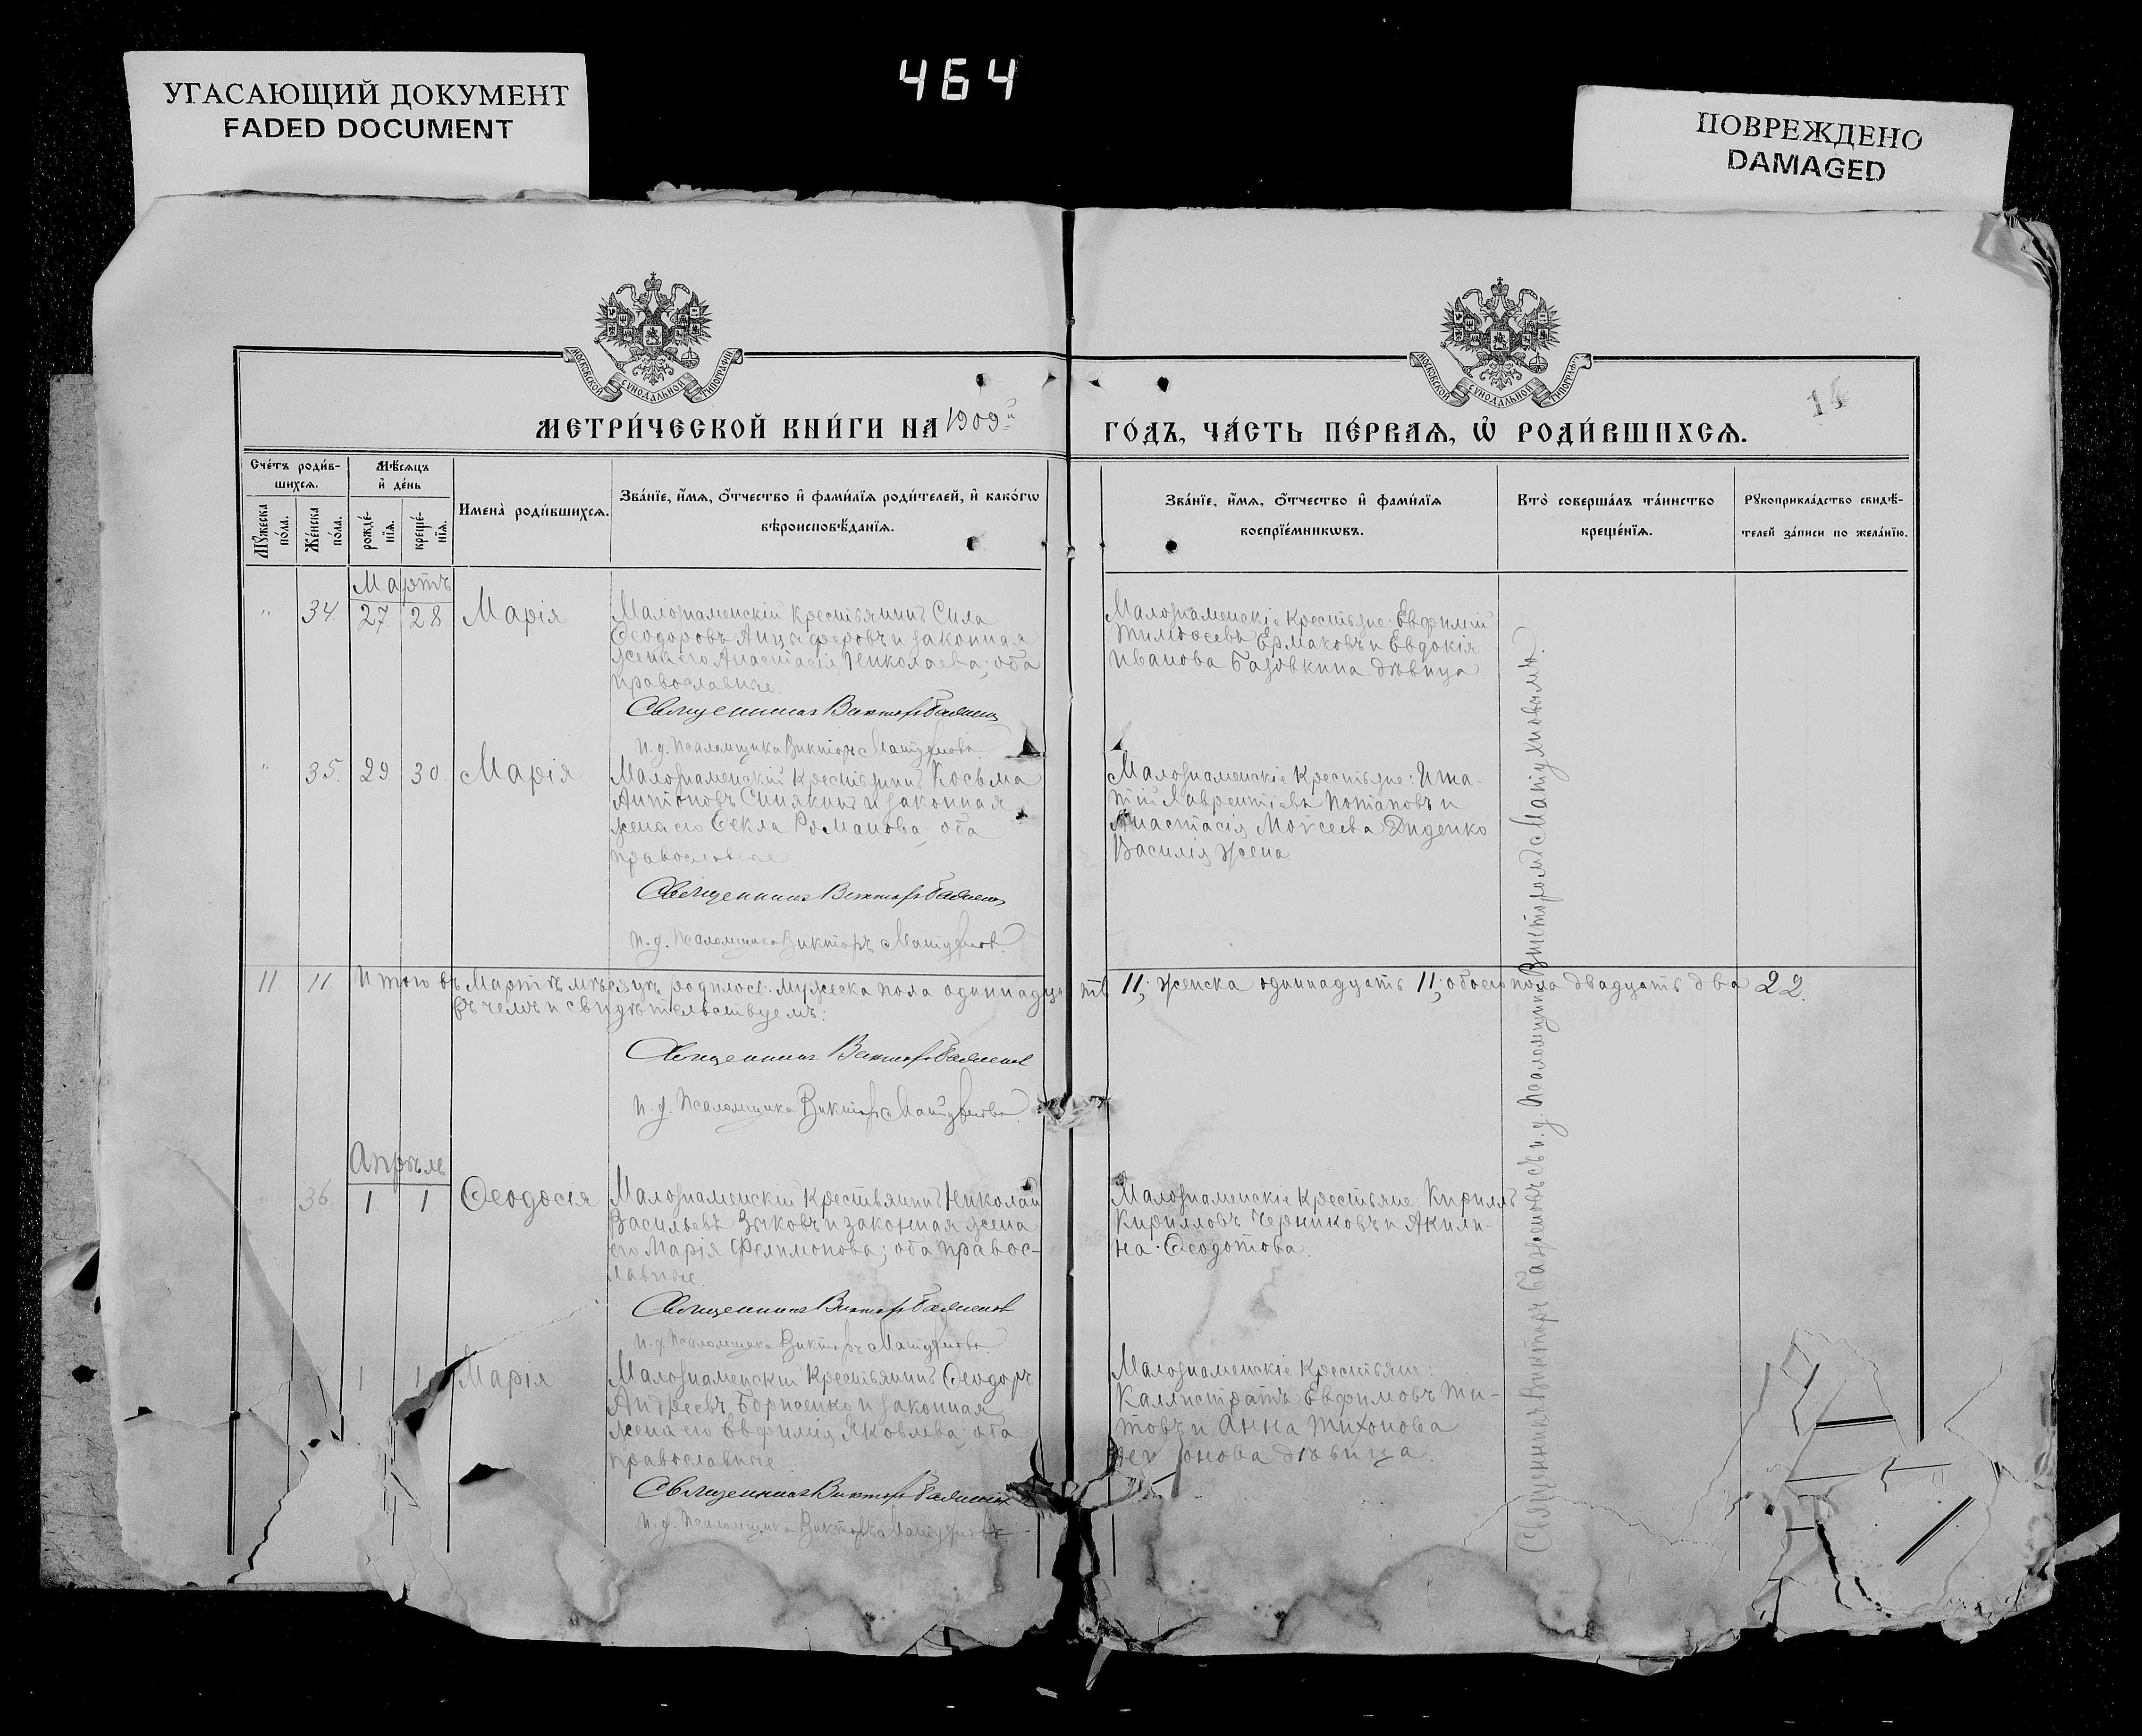 УГАСАЮЩИЙ ДОКУМЕНТ
FADED DOCUMENT
464
ПОВРЕЖДЕНО
DAMAGED
МОСКОВСКОЙ СУНОДАЛЬНОЙ ТИПОГРАФІИ
МОСКОВСКОЙ СУНОДАЛЬНОЙ ТИПОГРАФІИ
14
МЕТРИ́ЧЕСКОЙ КНИ́ГИ НА 1909й ГО́ДЪ, ЧА́СТЬ ПЕ́РВАѦ, Ѡ РОДИ́ВШИХСѦ.
Сче́тъ роди́в-
шихсѧ.
Мꙋжеска по́ла.
Же́нска по́ла.
Мѣ́сѧцъ
и҆ де́нь
рожде́-
нїѧ.
креще́-
нїѧ.
Имена̀ роди́вшихсѧ.
Зва́нїе, и҆́мѧ, ѻ҆́тчество и҆ фами́лїѧ роди́телей, и҆ како́гѡ
вѣроисповѣ́данїѧ.
Зва́нїе, и҆́мѧ, ѻ҆́тчество и҆ фами́лїѧ
воспрїе́мникѡвъ.
Кто̀ соверша́лъ та́инство
креще́нїѧ.
Рꙋкоприкла́дство свидѣ́-
телей за́писи по жела́нїю.
Мартъ
" 34. 27 28 Марія
Малознаменскій крестьянинъ Сила
Ѳеодоровъ Анцыферовъ и законная
жена его Анастасія Николаева; оба
православные.
Священникъ Викторъ Баженовъ
и. д. Псаломщика Викторъ Матухновъ.
Малознаменскіе крестьяне: Евфимій
Тимоѳеевъ Ермаковъ и Евдокія
Иванова Базовкина дѣвица
" 35. 29 30. Марія
Малознаменскій крестьянинъ Косьма
Антоновъ Синякинъ и законная
жена его Ѳекла Романова; оба
православные.
Священникъ Викторъ Баженовъ
и. д. Псаломщика Викторъ Матухновъ.
Малознаменскіе крестьяне: Ипа-
тій Лаврентіевъ Потаповъ и
Анастасія Моисеева Диденко
Василія жена
11 11 Итого въ Мартѣ мѣсяцѣ родилось: мужеска пола одиннадцать 11; женска одиннадцать 11; обоего пола двадцать два 22.
въ чемъ и свидѣтельствуемъ:
Священникъ Викторъ Баженовъ
и. д. Псаломщика Викторъ Матухновъ.
Апрѣль
36. 1 1. Ѳеодосія
Малознаменскій крестьянинъ Николай
Васильевъ Зыковъ и законная жена
его Марія Филимонова; оба правос-
лавные.
Священникъ Викторъ Баженовъ
и. д. Псаломщика Викторъ Матухновъ.
Малознаменскіе крестьяне: Кириллъ
Кирилловъ Черниковъ и Акили-
на Ѳеодотова.
1 1 Марія
Малознаменскій крестьянинъ Ѳеодоръ
Андреевъ Борисенко и законная
жена его Евфимія Яковлева; оба
православные.
Священникъ Викторъ Баженовъ
и. д. Псаломщика Викторъ Матухновъ
Малознаменскіе крестьяне:
Каллистратъ Евфимовъ Ти-
товъ и Анна Тихонова
дѣвица.
Священникъ Викторъ Баженовъ съ и. д. Псаломщика Викторомъ Матухновымъ.